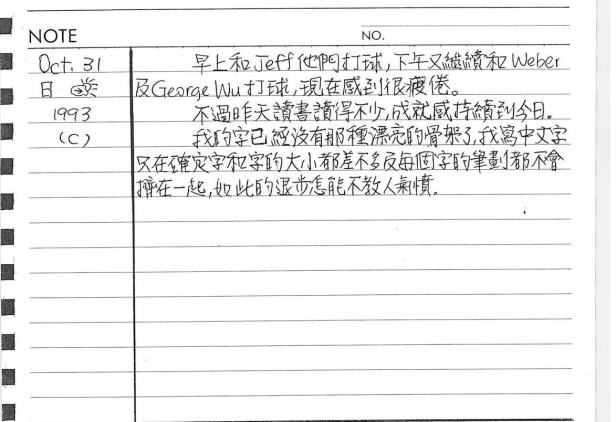 NOTE
NO.
Oct. 31
早上和Jeff他們打球,下午又繼續和Weber
日
及George Wu打球,現在感到很疲倦。
1993
不過昨天讀書讀得不少,成就感持續到今日。
(C)
我的字已經沒有那種漂亮的骨架了,我寫中文字
只在確定字和字的大小都差不多及每個字的筆劃都不會
擠在一起,如此的退步怎能不教人氣憤。